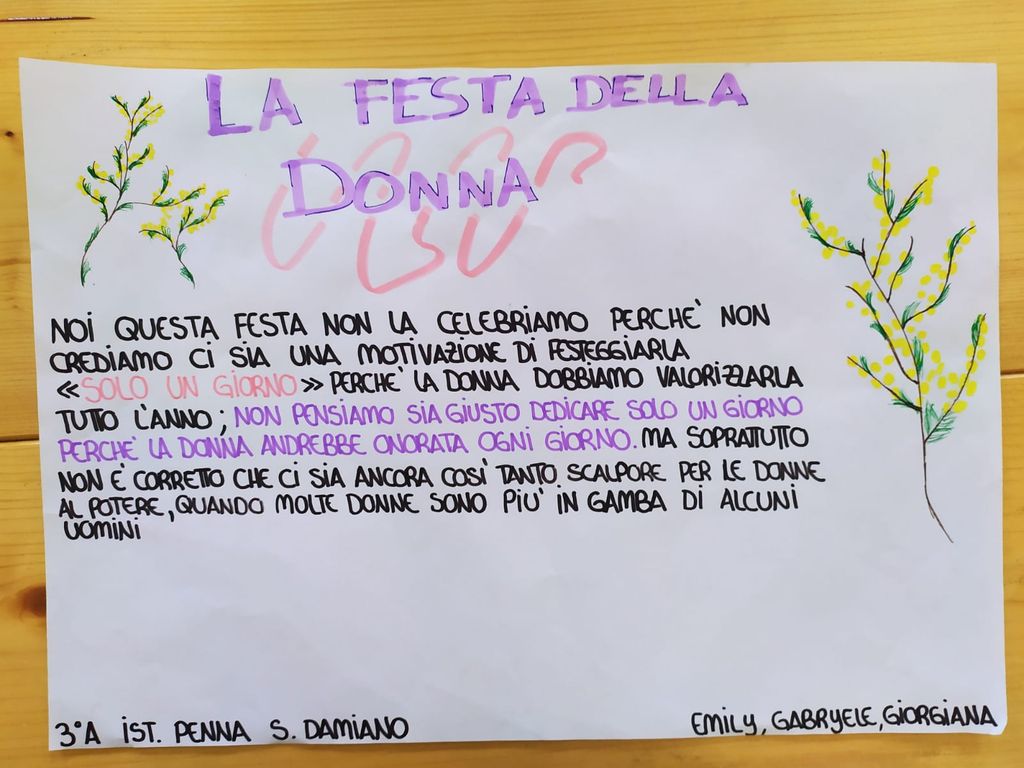 LA FESTA DELLA
DONNA
NOI QUESTA FESTA NON LA CELEBRIAMO PERCHE' NON
CREDIAMO CI SIA UNA MOTIVAZIONE DI FESTEGGIARLA
«SOLO UN GIORNO» PERCHE' LA DONNA DOBBIAMO VALORIZZARLA
TUTTO L'ANNO; NON PENSIAMO SIA GIUSTO DEDICARE SOLO UN GIORNO
PERCHE' LA DONNA ANDREBBE ONORATA OGNI GIORNO. MA SOPRATTUTTO
NON E' CORRETTO CHE CI SIA ANCORA COSI' TANTO SCALPORE PER LE DONNE
AL POTERE, QUANDO MOLTE DONNE SONO PIU' IN GAMBA DI ALCUNI
UOMINI
3°A IST. PENNA S. DAMIANO
EMILY, GABRYELE, GIORGIANA